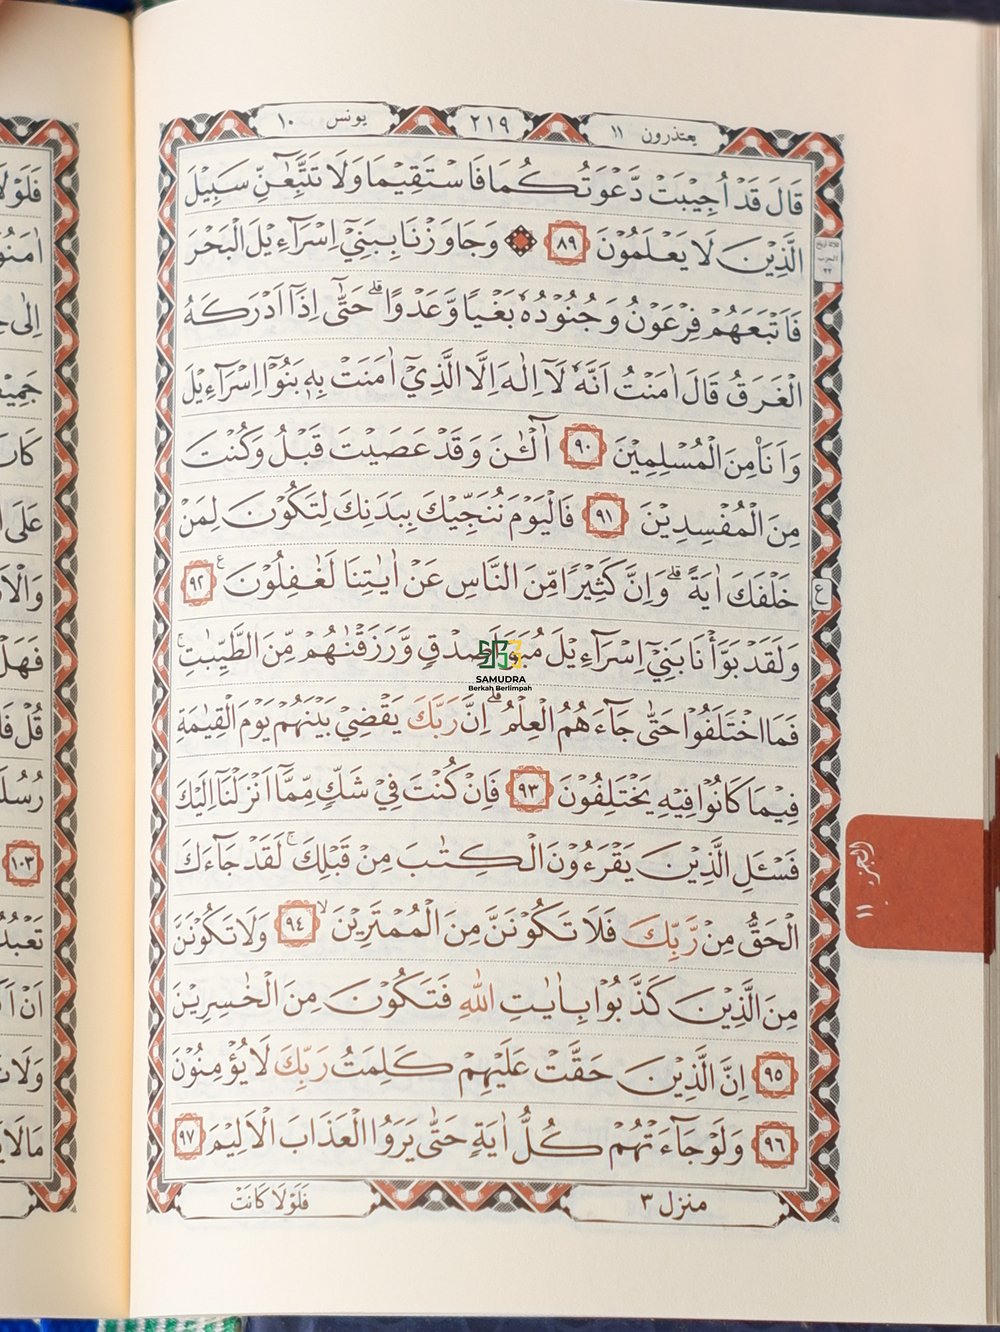 يونس ١٠
٢١٩
يعتذرون ١١
قَالَ قَدْ اُجِيْبَتْ دَّعْوَتُكُمَا فَاسْتَقِيْمَا وَلَا تَتَّبِعٰۤنِّ سَبِيْلَ
الَّذِيْنَ لَا يَعْلَمُوْنَ ٨٩ وَجَاوَزْنَا بِبَنِيْٓ اِسْرَاۤءِيْلَ الْبَحْرَ
فَاَتْبَعَهُمْ فِرْعَوْنُ وَجُنُوْدُهٗ بَغْيًا وَّعَدْوًا ۗ حَتّٰىٓ اِذَآ اَدْرَكَهُ
الْغَرَقُ قَالَ اٰمَنْتُ اَنَّهٗ لَآ اِلٰهَ اِلَّا الَّذِيْٓ اٰمَنَتْ بِهٖ بَنُوْٓا اِسْرَاۤءِيْلَ
وَاَنَا۠ مِنَ الْمُسْلِمِيْنَ ٩٠ اٰۤلْـٰٔنَ وَقَدْ عَصَيْتَ قَبْلُ وَكُنْتَ
مِنَ الْمُفْسِدِيْنَ ٩١ فَالْيَوْمَ نُنَجِّيْكَ بِبَدَنِكَ لِتَكُوْنَ لِمَنْ
خَلْفَكَ اٰيَةً ۗ وَاِنَّ كَثِيْرًا مِّنَ النَّاسِ عَنْ اٰيٰتِنَا لَغٰفِلُوْنَ ࣖ ٩٢
ع
وَلَقَدْ بَوَّأْنَا بَنِيْٓ اِسْرَاۤءِيْلَ مُبَوَّاَ صِدْقٍ وَّرَزَقْنٰهُمْ مِّنَ الطَّيِّبٰتِ ۚ
SAMUDRA
Berkah Berlimpah
فَمَا اخْتَلَفُوْا حَتّٰى جَاۤءَهُمُ الْعِلْمُ ۗ اِنَّ رَبَّكَ يَقْضِيْ بَيْنَهُمْ يَوْمَ الْقِيٰمَةِ
فِيْمَا كَانُوْا فِيْهِ يَخْتَلِفُوْنَ ٩٣ فَاِنْ كُنْتَ فِيْ شَكٍّ مِّمَّآ اَنْزَلْنَآ اِلَيْكَ
فَسْـَٔلِ الَّذِيْنَ يَقْرَءُوْنَ الْكِتٰبَ مِنْ قَبْلِكَ ۚ لَقَدْ جَاۤءَكَ
الْحَقُّ مِنْ رَّبِّكَ فَلَا تَكُوْنَنَّ مِنَ الْمُمْتَرِيْنَ ۙ ٩٤ وَلَا تَكُوْنَنَّ
مِنَ الَّذِيْنَ كَذَّبُوْا بِاٰيٰتِ اللّٰهِ فَتَكُوْنَ مِنَ الْخٰسِرِيْنَ
٩٥ اِنَّ الَّذِيْنَ حَقَّتْ عَلَيْهِمْ كَلِمَتُ رَبِّكَ لَا يُؤْمِنُوْنَ
٩٦ وَلَوْ جَاۤءَتْهُمْ كُلُّ اٰيَةٍ حَتّٰى يَرَوُا الْعَذَابَ الْاَلِيْمَ ٩٧
منزل ٣
فَلَوْلَا كَانَتْ
الجزء ١١
١٠٣